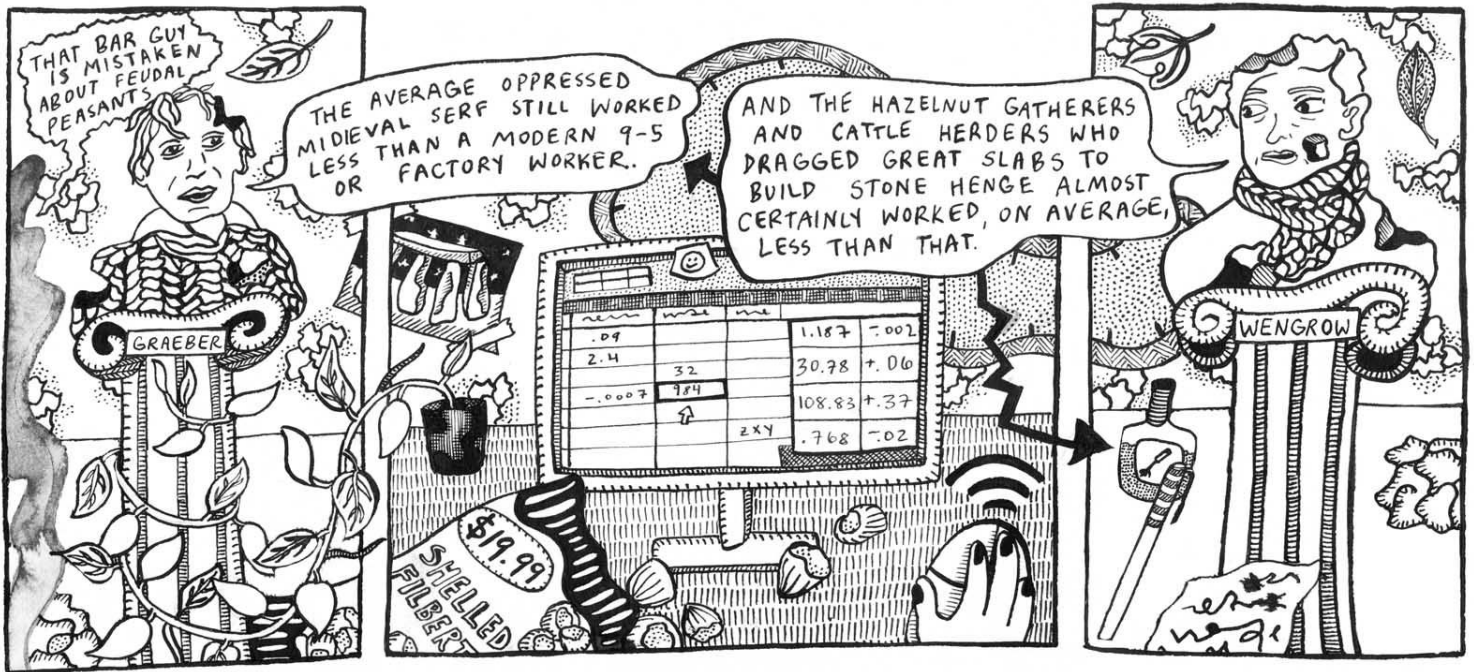 THAT BAR GUY
IS MISTAKEN
ABOUT FEUDAL
PEASANTS
GRAEBER
THE AVERAGE OPPRESSED
MIDIEVAL SERF STILL WORKED
LESS THAN A MODERN 9-5
OR FACTORY WORKER.
AND THE HAZELNUT GATHERERS
AND CATTLE HERDERS WHO
DRAGGED GREAT SLABS TO
BUILD STONE HENGE ALMOST
CERTAINLY WORKED, ON AVERAGE,
LESS THAN THAT.
.09 1.187 -.002
2.4
32 30.78 +.06
-.0007 984 108.83 +.37
ZXY .768 -.02
$19.99
SHELLED
FILBERT
WENGROW